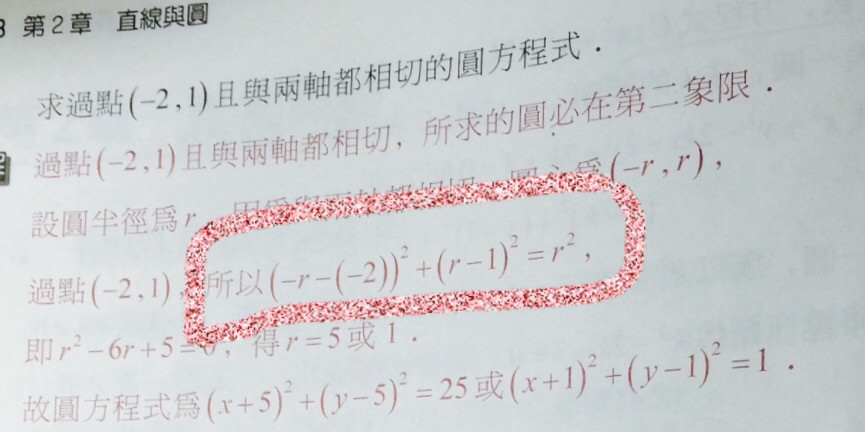 第2章 直線與圓
求過點(−2,1)且與兩軸都相切的圓方程式．
過點(−2,1)且與兩軸都相切，所求的圓必在第二象限．
設圓半徑為r 因為與兩軸都相切 圓心為(−r,r)，
過點(−2,1)，所以(−r−(−2))²+(r−1)²=r²，
即r²−6r+5=0，得r=5或1．
故圓方程式為(x+5)²+(y−5)²=25或(x+1)²+(y−1)²=1．